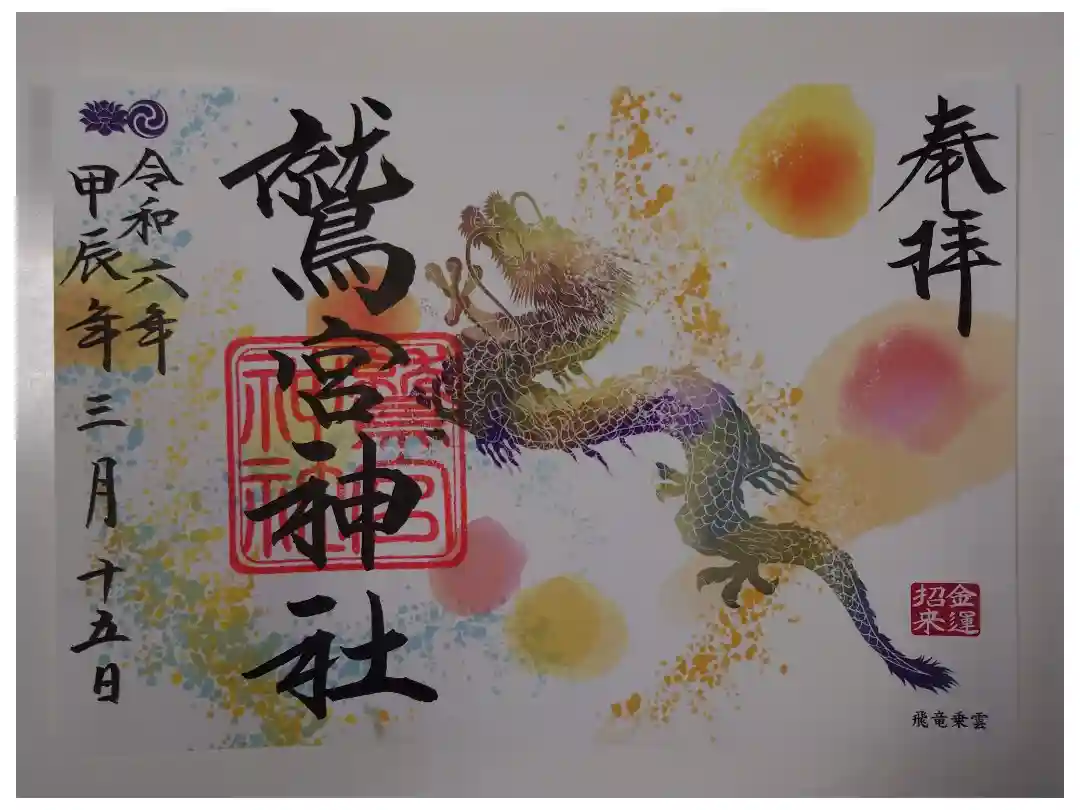 奉拝
金運
招来
飛竜乗雲
鷲宮神社
鷲宮
神社
令和六年
甲辰年
三月十五日